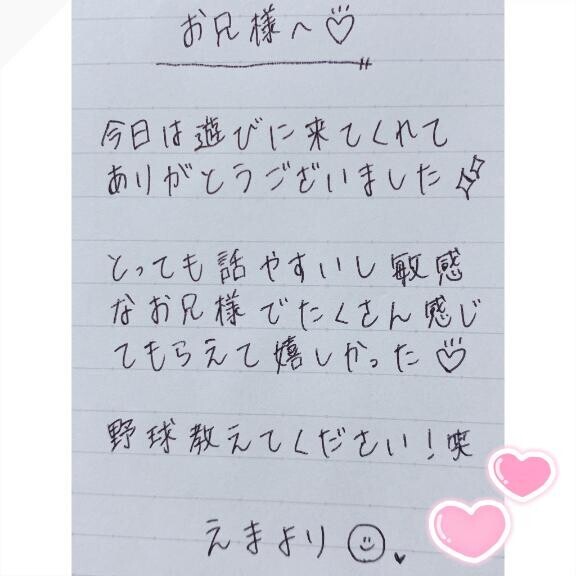 お兄様へ♡
今日は遊びに来てくれて
ありがとうございました
とっても話やすいし敏感
なお兄様でたくさん感じ
てもらえて嬉しかった♡
野球教えてください!笑
えまより